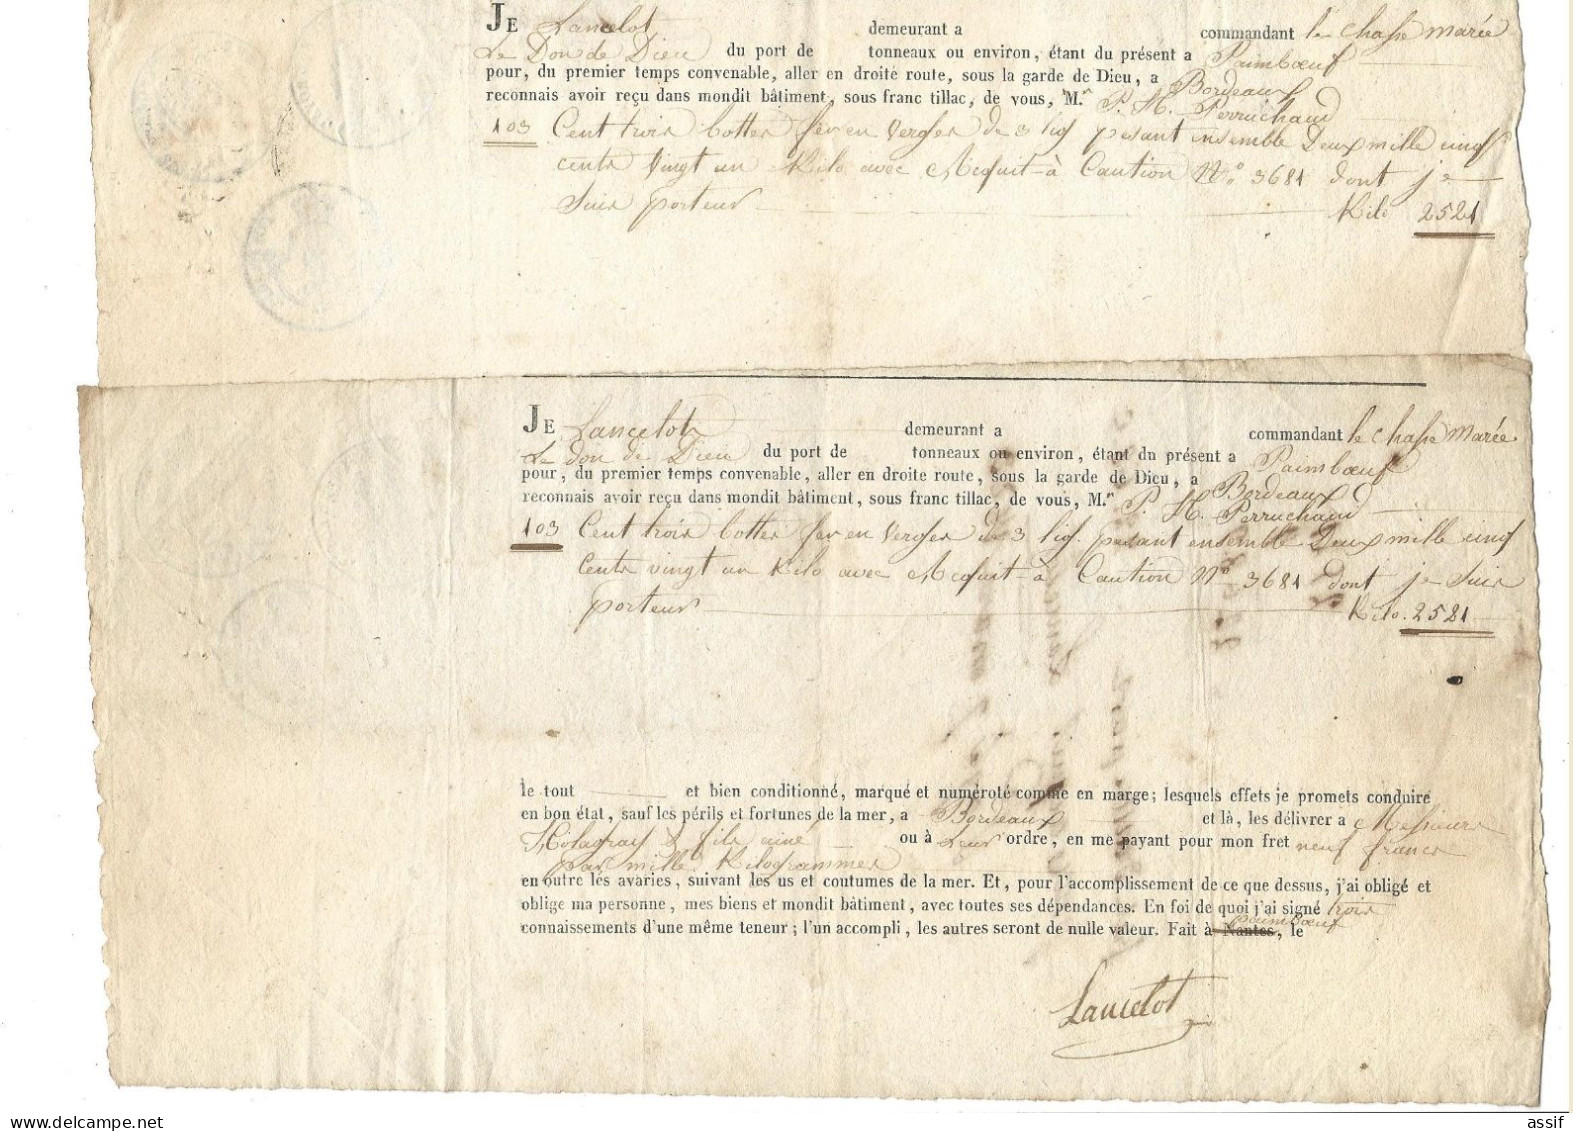 JE Lancelot demeurant a commandant le Chasse marée
Le Don de Dieu du port de tonneaux ou environ, étant du présent a Paimbœuf
pour, du premier temps convenable, aller en droite route, sous la garde de Dieu, a Bordeaux
reconnais avoir reçu dans mondit bâtiment, sous franc tillac, de vous, M.r P. H. Perruchaud
103 Cent trois bottes fer en verges de 3 lig pesant ensemble Deux mille cinq
cents vingt un Kilo avec Acquit-à Caution N.o 3681 dont je
suis porteur Kilo 2521
JE Lancelot demeurant a commandant le Chasse Marée
Le Don de Dieu du port de tonneaux ou environ, étant du présent a Paimbœuf
pour, du premier temps convenable, aller en droite route, sous la garde de Dieu, a Bordeaux
reconnais avoir reçu dans mondit bâtiment, sous franc tillac, de vous, M.r P. H. Perruchaud
103 Cent trois bottes fer en verges de 3 lig. pesant ensemble Deux mille cinq
Cents vingt un Kilo avec Acquit-à Caution N.o 3681 dont je suis
porteur Kilo. 2521
le tout et bien conditionné, marqué et numéroté comme en marge; lesquels effets je promets conduire
en bon état, sauf les périls et fortunes de la mer, a Bordeaux et là, les délivrer a Messieurs
& fils ainé ou à Leur ordre, en me payant pour mon fret neuf francs
par mille Kilogrammes
en outre les avaries, suivant les us et coutumes de la mer. Et, pour l'accomplissement de ce que dessus, j'ai obligé et
oblige ma personne, mes biens et mondit bâtiment, avec toutes ses dépendances. En foi de quoi j'ai signé trois
connaissements d'une même teneur; l'un accompli, les autres seront de nulle valeur. Fait à Nantes, Paimbœuf le
Lancelot
assif